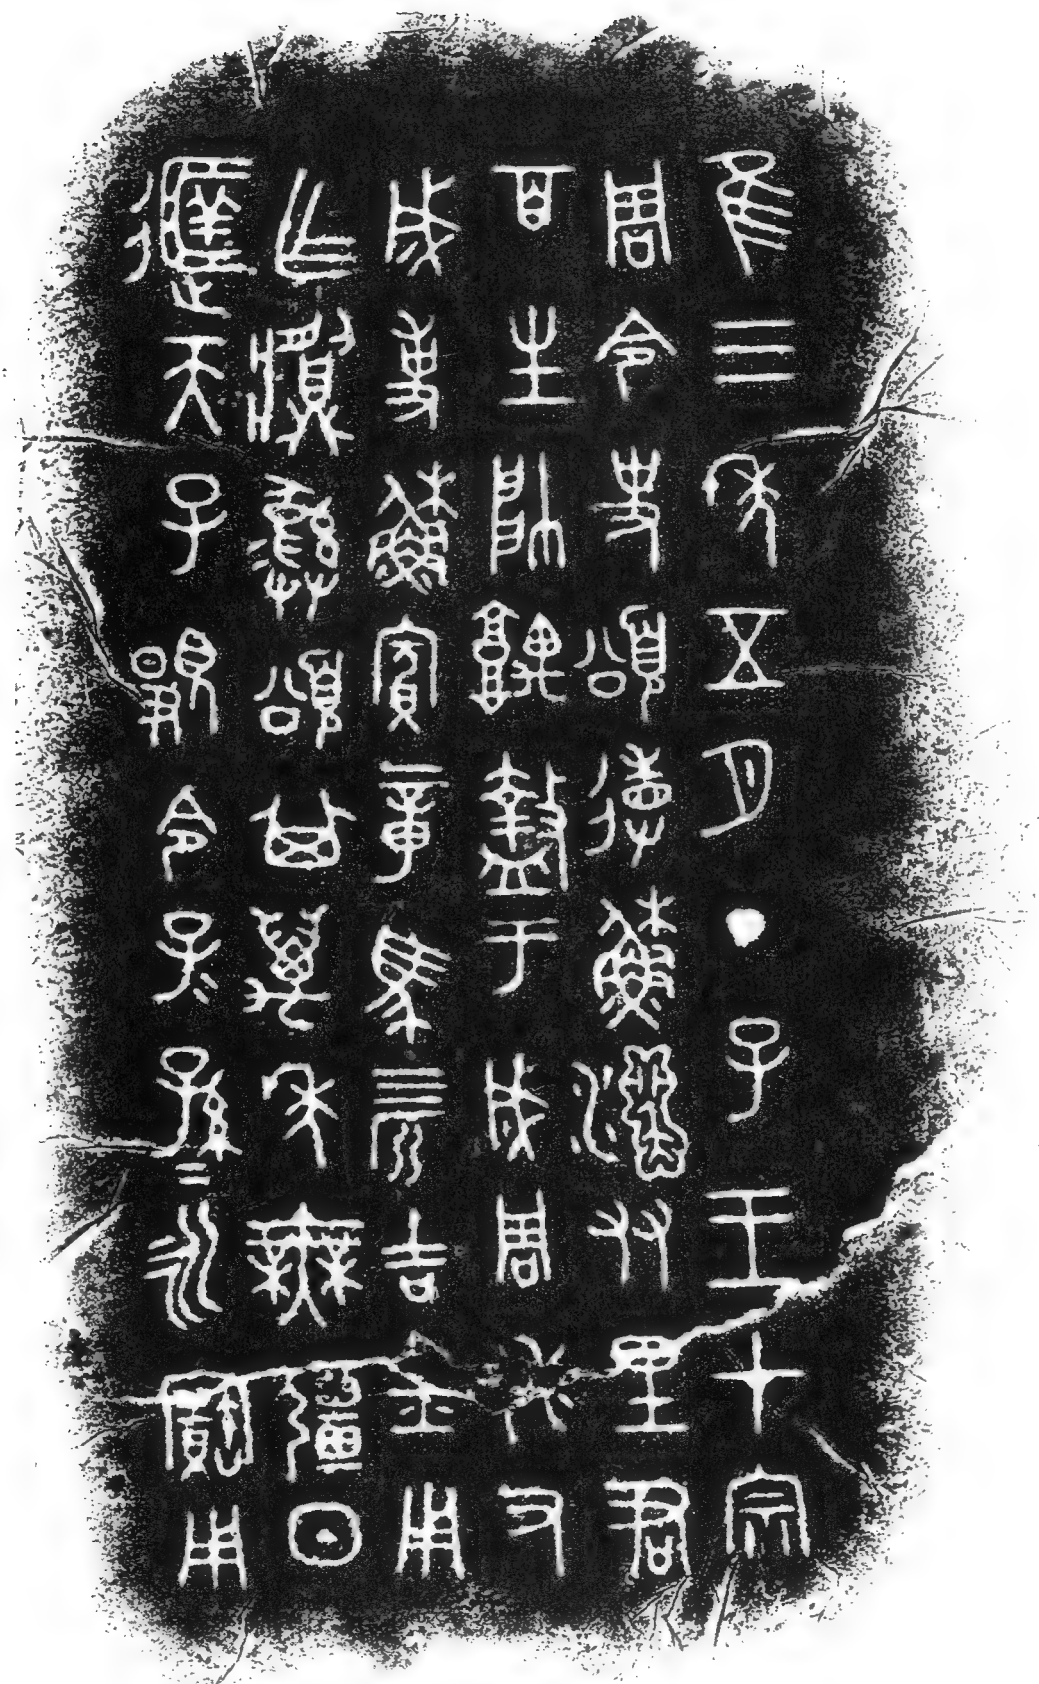 隹三年五月丁子王才宗
周令史頌省穌姻友里君
百生帥堣盩于成周休又
成事穌賓章馬四匹吉金用
乍䵼彝頌其萬年無疆日
遟天子顯令子＝孫＝永寶用